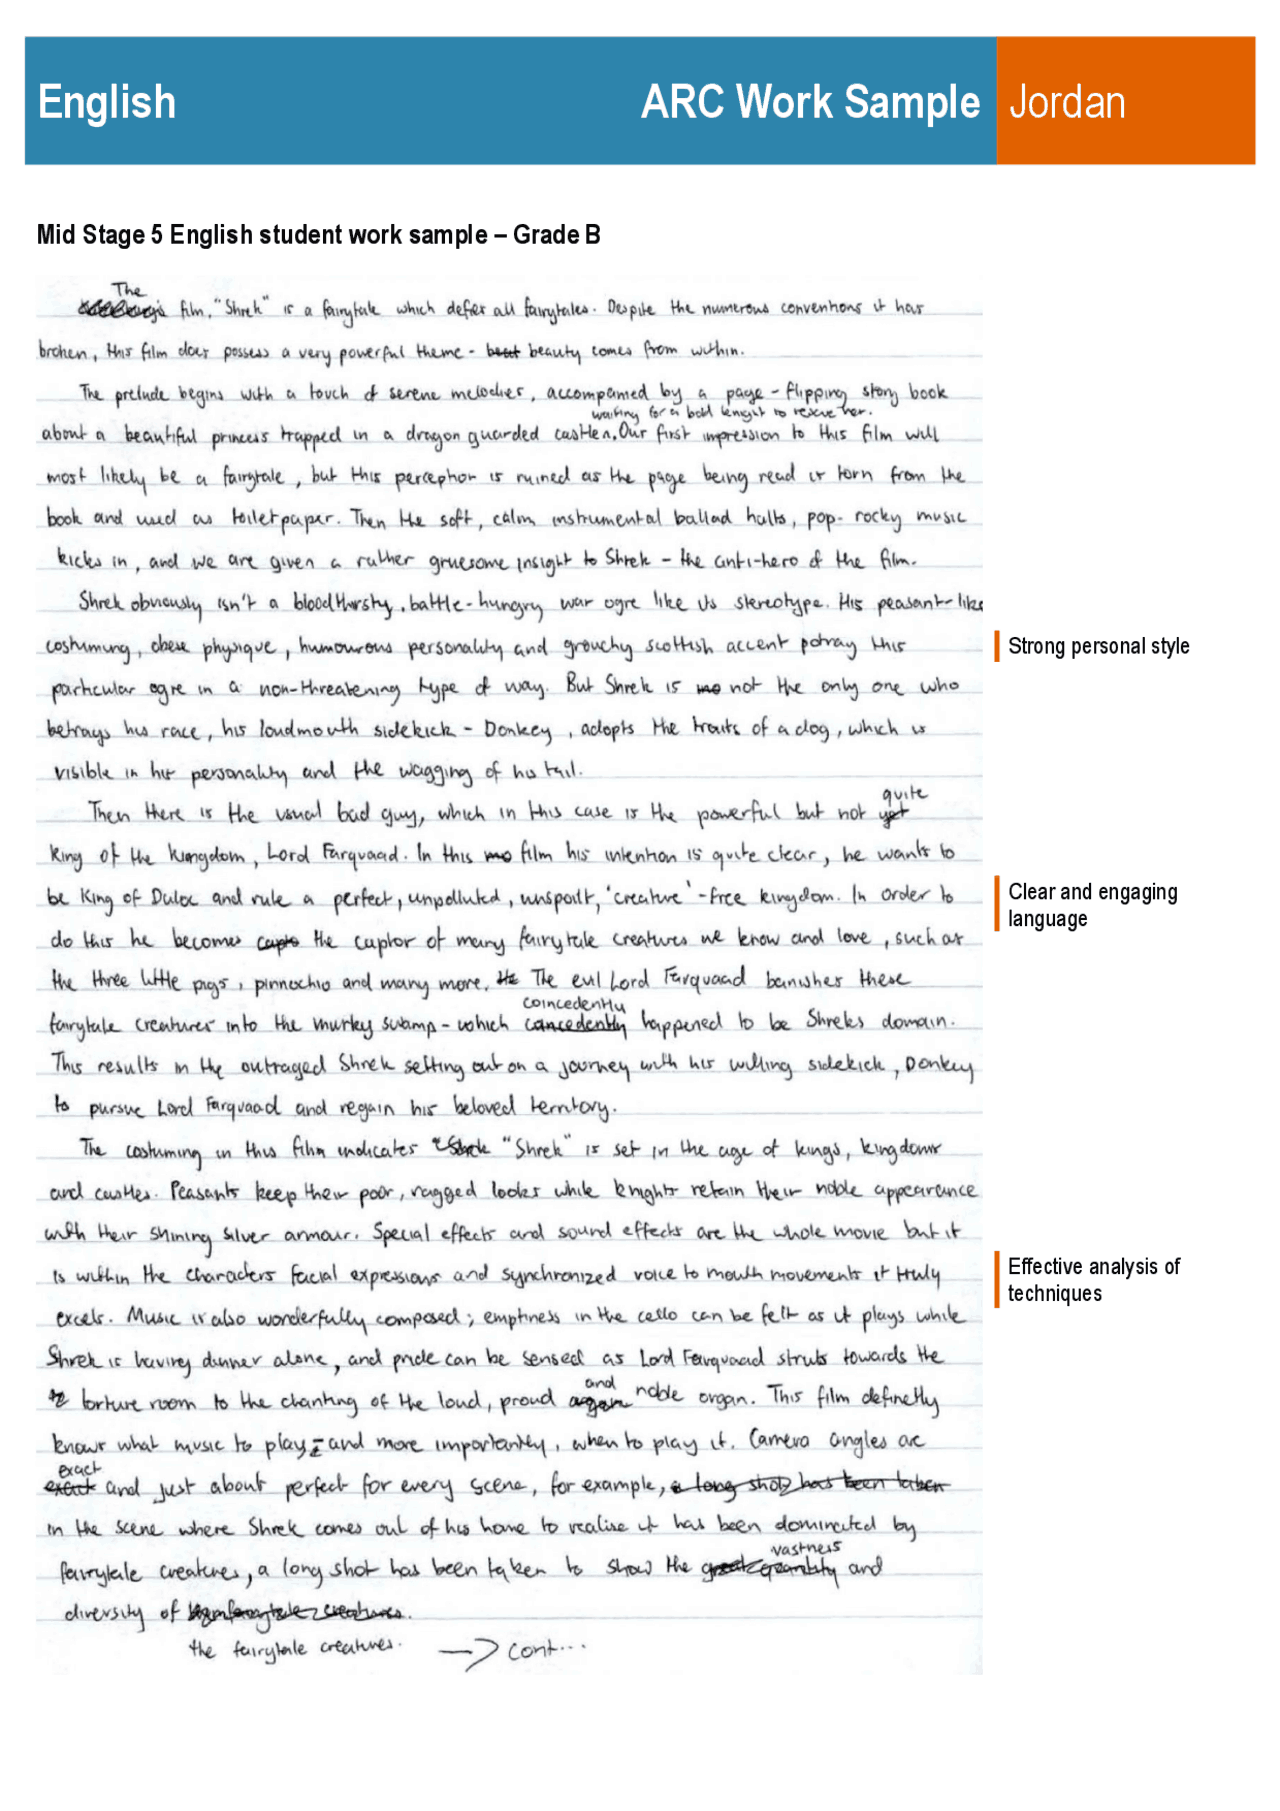 English
ARC Work Sample
Jordan
Mid Stage 5 English student work sample – Grade B
The
film, "Shrek" is a fairytale which defer all fairytales. Despite the numerous conventions it has
broken, this film does possess a very powerful theme - beaut beauty comes from within.
The prelude begins with a touch of serene melodies, accompanied by a page-flipping story book
waiting for a bold knight to rescue her.
about a beautiful princess trapped in a dragon guarded castle. Our first impression to this film will
most likely be a fairytale, but this perception is ruined as the page being read is torn from the
book and used as toiletpaper. Then the soft, calm instrumental ballad halts, pop-rocky music
kicks in, and we are given a rather gruesome insight to Shrek - the anti-hero of the film.
Shrek obviously isn't a bloodthirsty, battle-hungry war ogre like its stereotype. His peasant-like
costuming, obese physique, humourous personality and grouchy scottish accent potray this
Strong personal style
particular ogre in a non-threatening type of way. But Shrek is no not the only one who
betrays his race, his loudmouth sidekick - Donkey, adopts the traits of a dog, which is
visible in his personality and the wagging of his tail.
quite
Then there is the usual bad guy, which in this case is the powerful but not yet
King of the kingdom, Lord Farquaad. In this mo film his intention is quite clear, he wants to
be King of Duloc and rule a perfect, unpolluted, unspoilt, 'creature'-free kingdom. In order to
Clear and engaging
language
do this he becomes capto the captor of many fairytale creatures we know and love, such as
the three little pigs, pinnochio and many more. He The evil Lord Farquaad banishes these
coincedently
fairytale creatures into the murky swamp - which concedently happened to be Shreks domain.
This results in the outraged Shrek setting out on a journey with his willing sidekick, Donkey
to pursue Lord Farquaad and regain his beloved territory.
The costuming in this film indicates "Shrek" is set in the age of kings, kingdoms
and castles. Peasants keep their poor, ragged looks while knights retain their noble appearance
with their shining silver armour. Special effects and sound effects are the whole movie but it
is within the characters facial expressions and synchronized voice to mouth movements it truly
Effective analysis of
techniques
excels. Music is also wonderfully composed; emptiness in the cello can be felt as it plays while
Shrek is having dinner alone, and pride can be sensed as Lord Farquaad struts towards the
and
torture room to the chanting of the loud, proud organ noble organ. This film definetly
knows what music to play - and more importantly, when to play it. Camera angles are
exact
exact and just about perfect for every scene, for example, a long shot has been taken
in the scene where Shrek comes out of his home to realise it has been dominated by
vastness
fairytale creatures, a long shot has been taken to show the great quantity and
diversity of
the fairytale creatures. → cont...